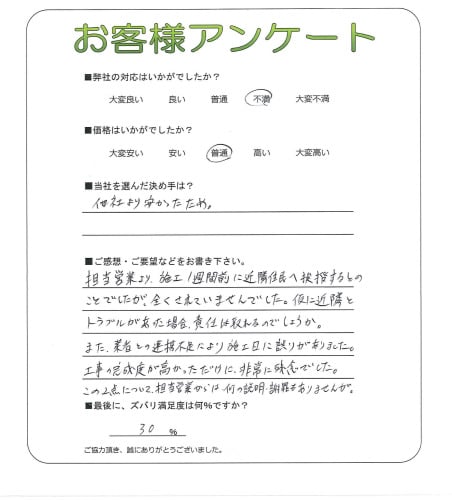 お客様アンケート
■弊社の対応はいかがでしたか？
大変良い 良い 普通 不満 大変不満
■価格はいかがでしたか？
大変安い 安い 普通 高い 大変高い
■当社を選んだ決め手は？
他社より安かったため。
■ご感想・ご要望などをお書き下さい。
担当営業より、施工1週間前に近隣住民へ挨拶するとの
ことでしたが、全くされていませんでした。仮に近隣と
トラブルがあった場合、責任は取れるのでしょうか。
また、業者との連携不足により施工日に誤りがありました。
工事の完成度が高かっただけに、非常に残念でした。
この2点について、担当営業からは何の説明・謝罪もありませんが。
■最後に、ズバリ満足度は何%ですか？
30 %
ご協力頂き、誠にありがとうございました。